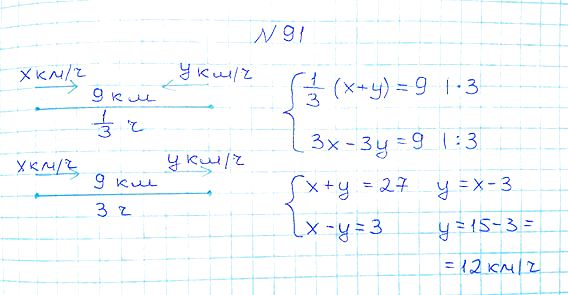 N 91
x км/ч y км/ч
9 км
1/3 ч
x км/ч y км/ч
9 км
3 ч
1/3 (x+y) = 9 | · 3
3x - 3y = 9 | : 3
x + y = 27 y = x - 3
x - y = 3 y = 15 - 3 =
= 12 км/ч